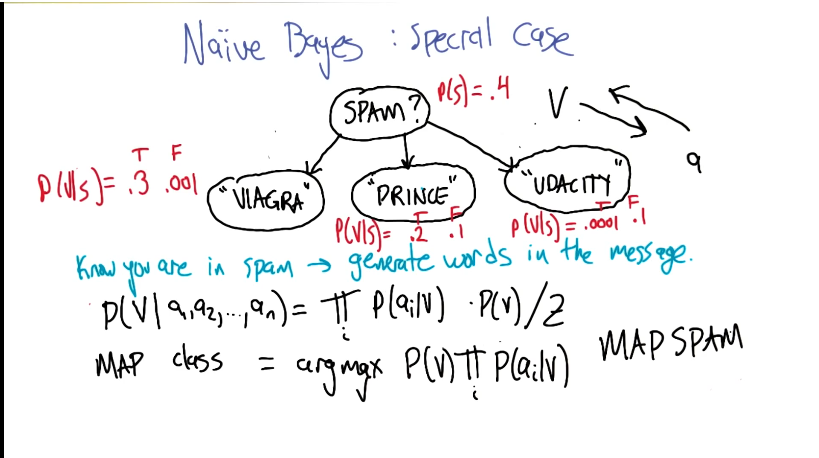 Naïve Bayes : Special Case
SPAM?
P(s)= .4
V
a
T F
P(V|s)= .3 .001
"VIAGRA"
"PRINCE"
"UDACITY"
T F
P(V|s)= .2 .1
T F
P(V|s)= .0001 .1
Know you are in spam → generate words in the message.
P(V|a₁,a₂,...,aₙ)= ∏ᵢ P(aᵢ|V) · P(V)/Z
MAP class = argmax P(V) ∏ᵢ P(aᵢ|V)
MAP SPAM